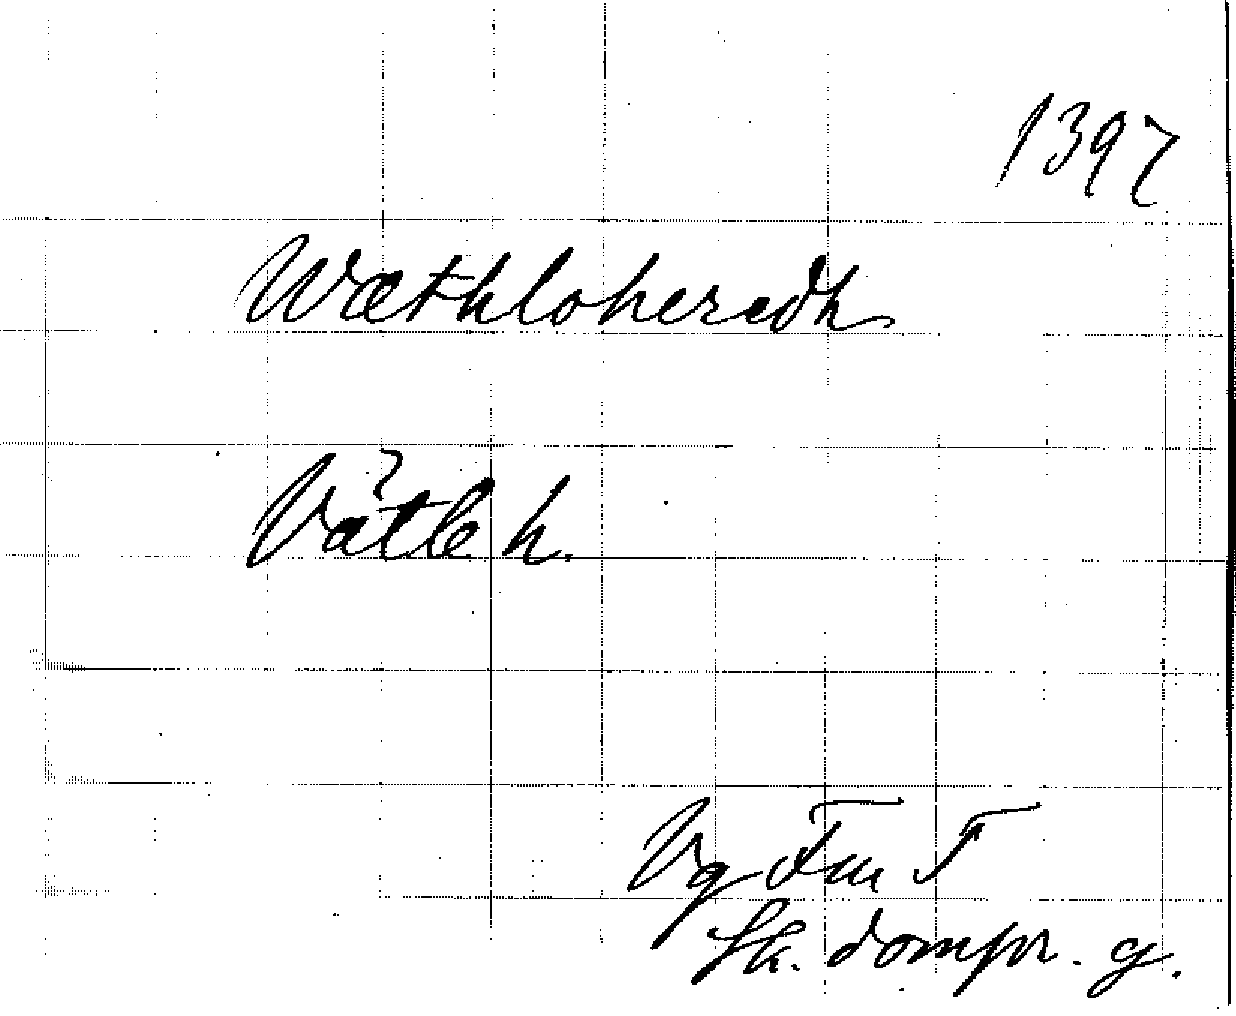 1397
Wæthloheredh
Vätle h.
Vg Fm F
Sk. dompr. g.